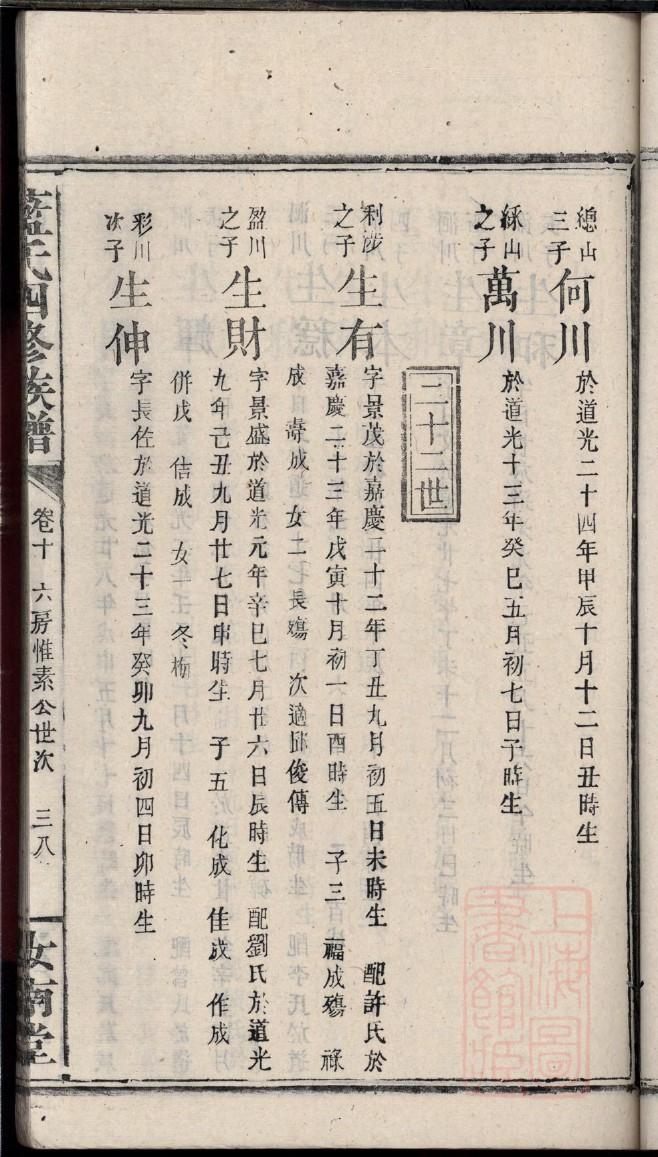 總山
三子
何川
於道光二十四年甲辰十月十二日丑時生
綵山
之子
萬川
於道光十三年癸巳五月初七日子時生
二十二世
利涉
之子
生有
字景茂於嘉慶二十二年丁丑九月初五日未時生 配許氏於
嘉慶二十三年戊寅十月初六日酉時生 子三 福成殤 祿
成 壽成 女二 長殤 次適邱俊傳
盈川
之子
生財
字景盛於道光元年辛巳七月廿六日辰時生 配劉氏於道光
九年己丑九月廿七日申時生 子五 化成 佳成 作成
併成 佶成 女 冬梅
彩川
次子
生伸
字長佐於道光二十三年癸卯九月初四日卯時生
藍氏四修族譜
卷十 六房惟素公世次 三八
汝南堂
上海圖
書館藏